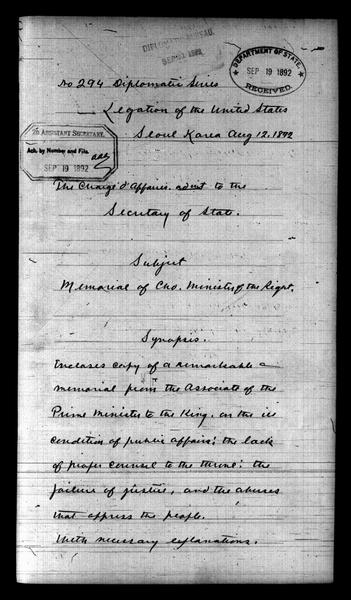 DIPLOMATIC BUREAU.
DEPARTMENT OF STATE,
SEP 19 1892
RECEIVED.
No 294 Diplomatic Series
Legation of the United States
Seoul Korea Aug 12, 1892
2D ASSISTANT SECRETARY.
Ack. by Number and File.
SEP 19 1892
The Chargé d'Affaires. ad int to the
Secretary of State.
Subject
Memorial of Cho. Minister of the Right.
Synopsis.
Encloses copy of a remarkable a
memorial from the Associate of the
Prime Minister to the King. on the ill
condition of public affairs; the lack
of proper counsel to the throne; the
failure of justice, and the abuses
that oppress the people.
With necessary explanations.